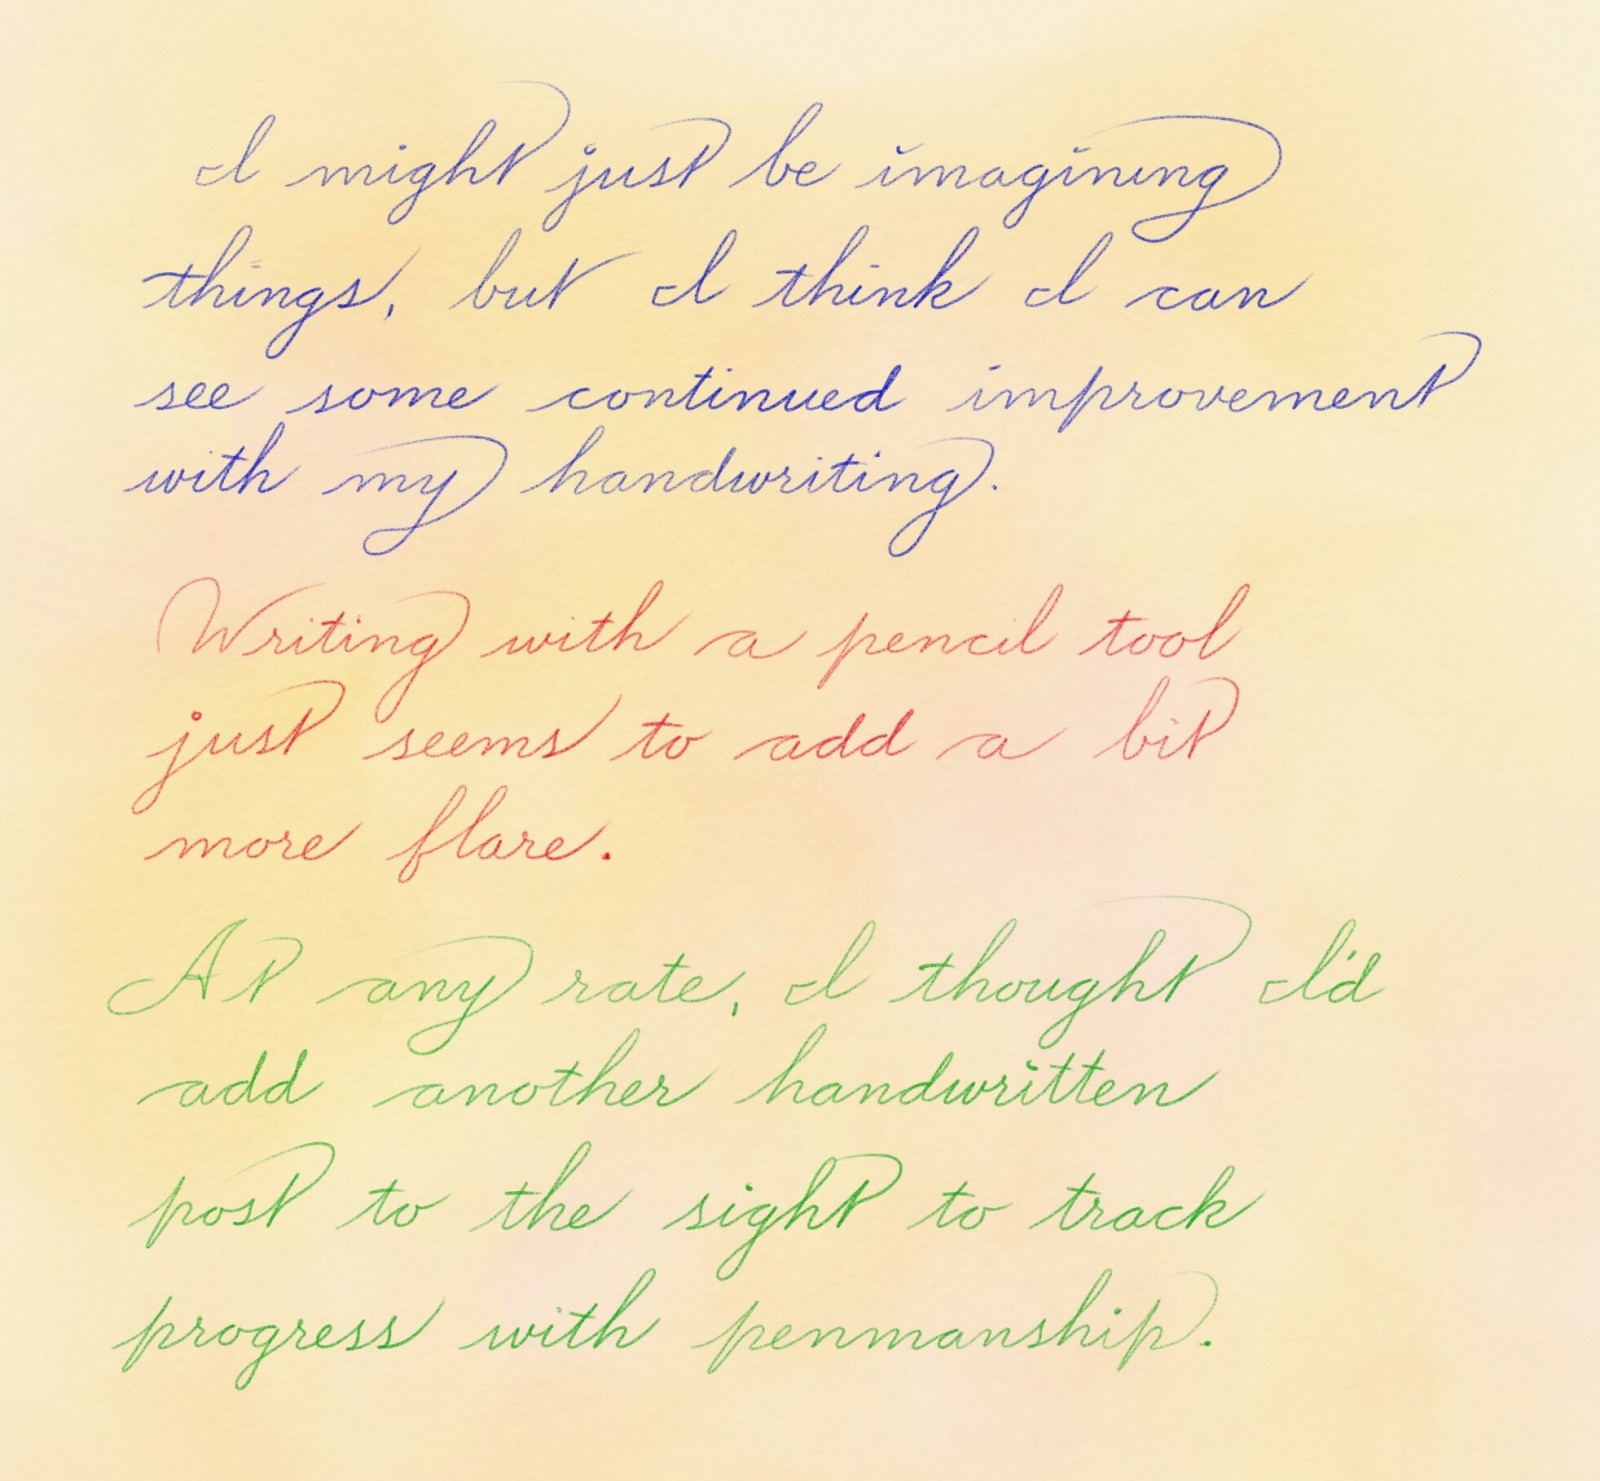 I might just be imagining
things, but I think I can
see some continued improvement
with my handwriting.
Writing with a pencil tool
just seems to add a bit
more flare.
At any rate, I thought I'd
add another handwritten
post to the sight to track
progress with penmanship.